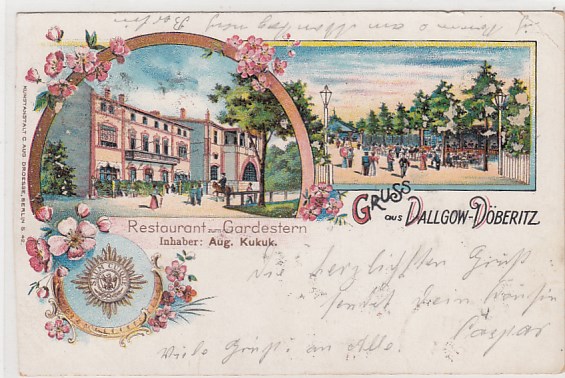 Restaurant zum Gardestern
Inhaber: Aug. Kukuk.
GRUSS
aus DALLGOW-DÖBERITZ
KUNSTANSTALT C. AUG. DROESSE, BERLIN S. 42.
Die herzlichsten Grüße
sendet Dein
Caspar
Viele Grüße an Alle.